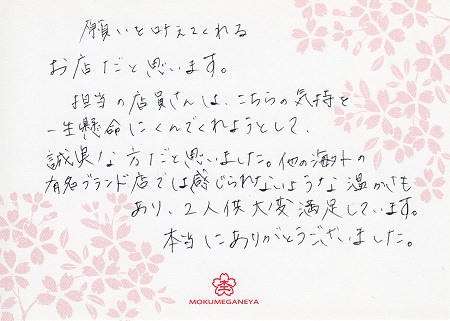 願いを叶えてくれる
お店だと思います。
担当の店員さんは、こちらの気持を
一生懸命にくんでくれようとして、
誠実な方だと思いました。他の海外の
有名ブランド店では感じられないような温かさも
あり、2人供大変満足しています。
本当にありがとうございました。
MOKUMEGANEYA